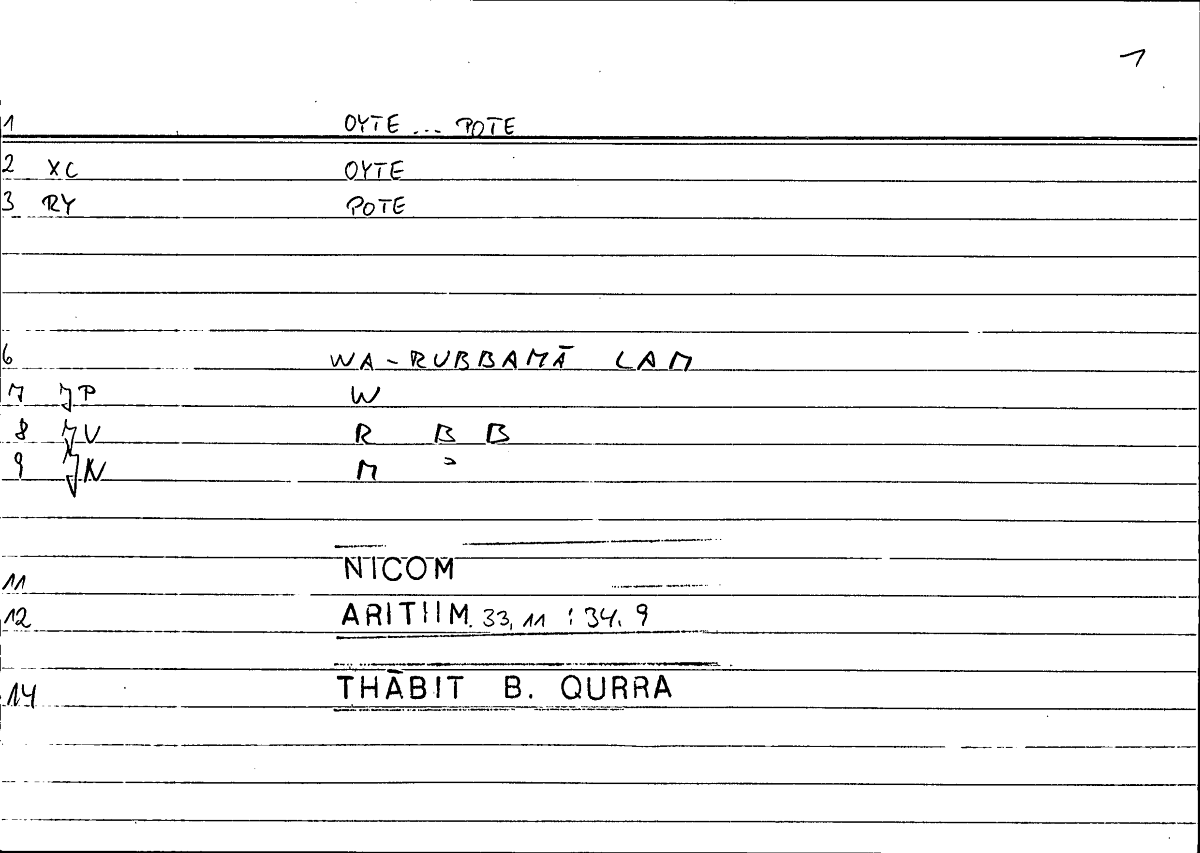 1
1 OYTE ... POTE
2 XC OYTE
3 RY POTE
6 WA-RUBBAMĀ LAM
7 JP W
8 JU R B B
9 JN M
NICOM
11
12 ARITIIM. 33, 11 : 34. 9
14 THĀBIT B. QURRA